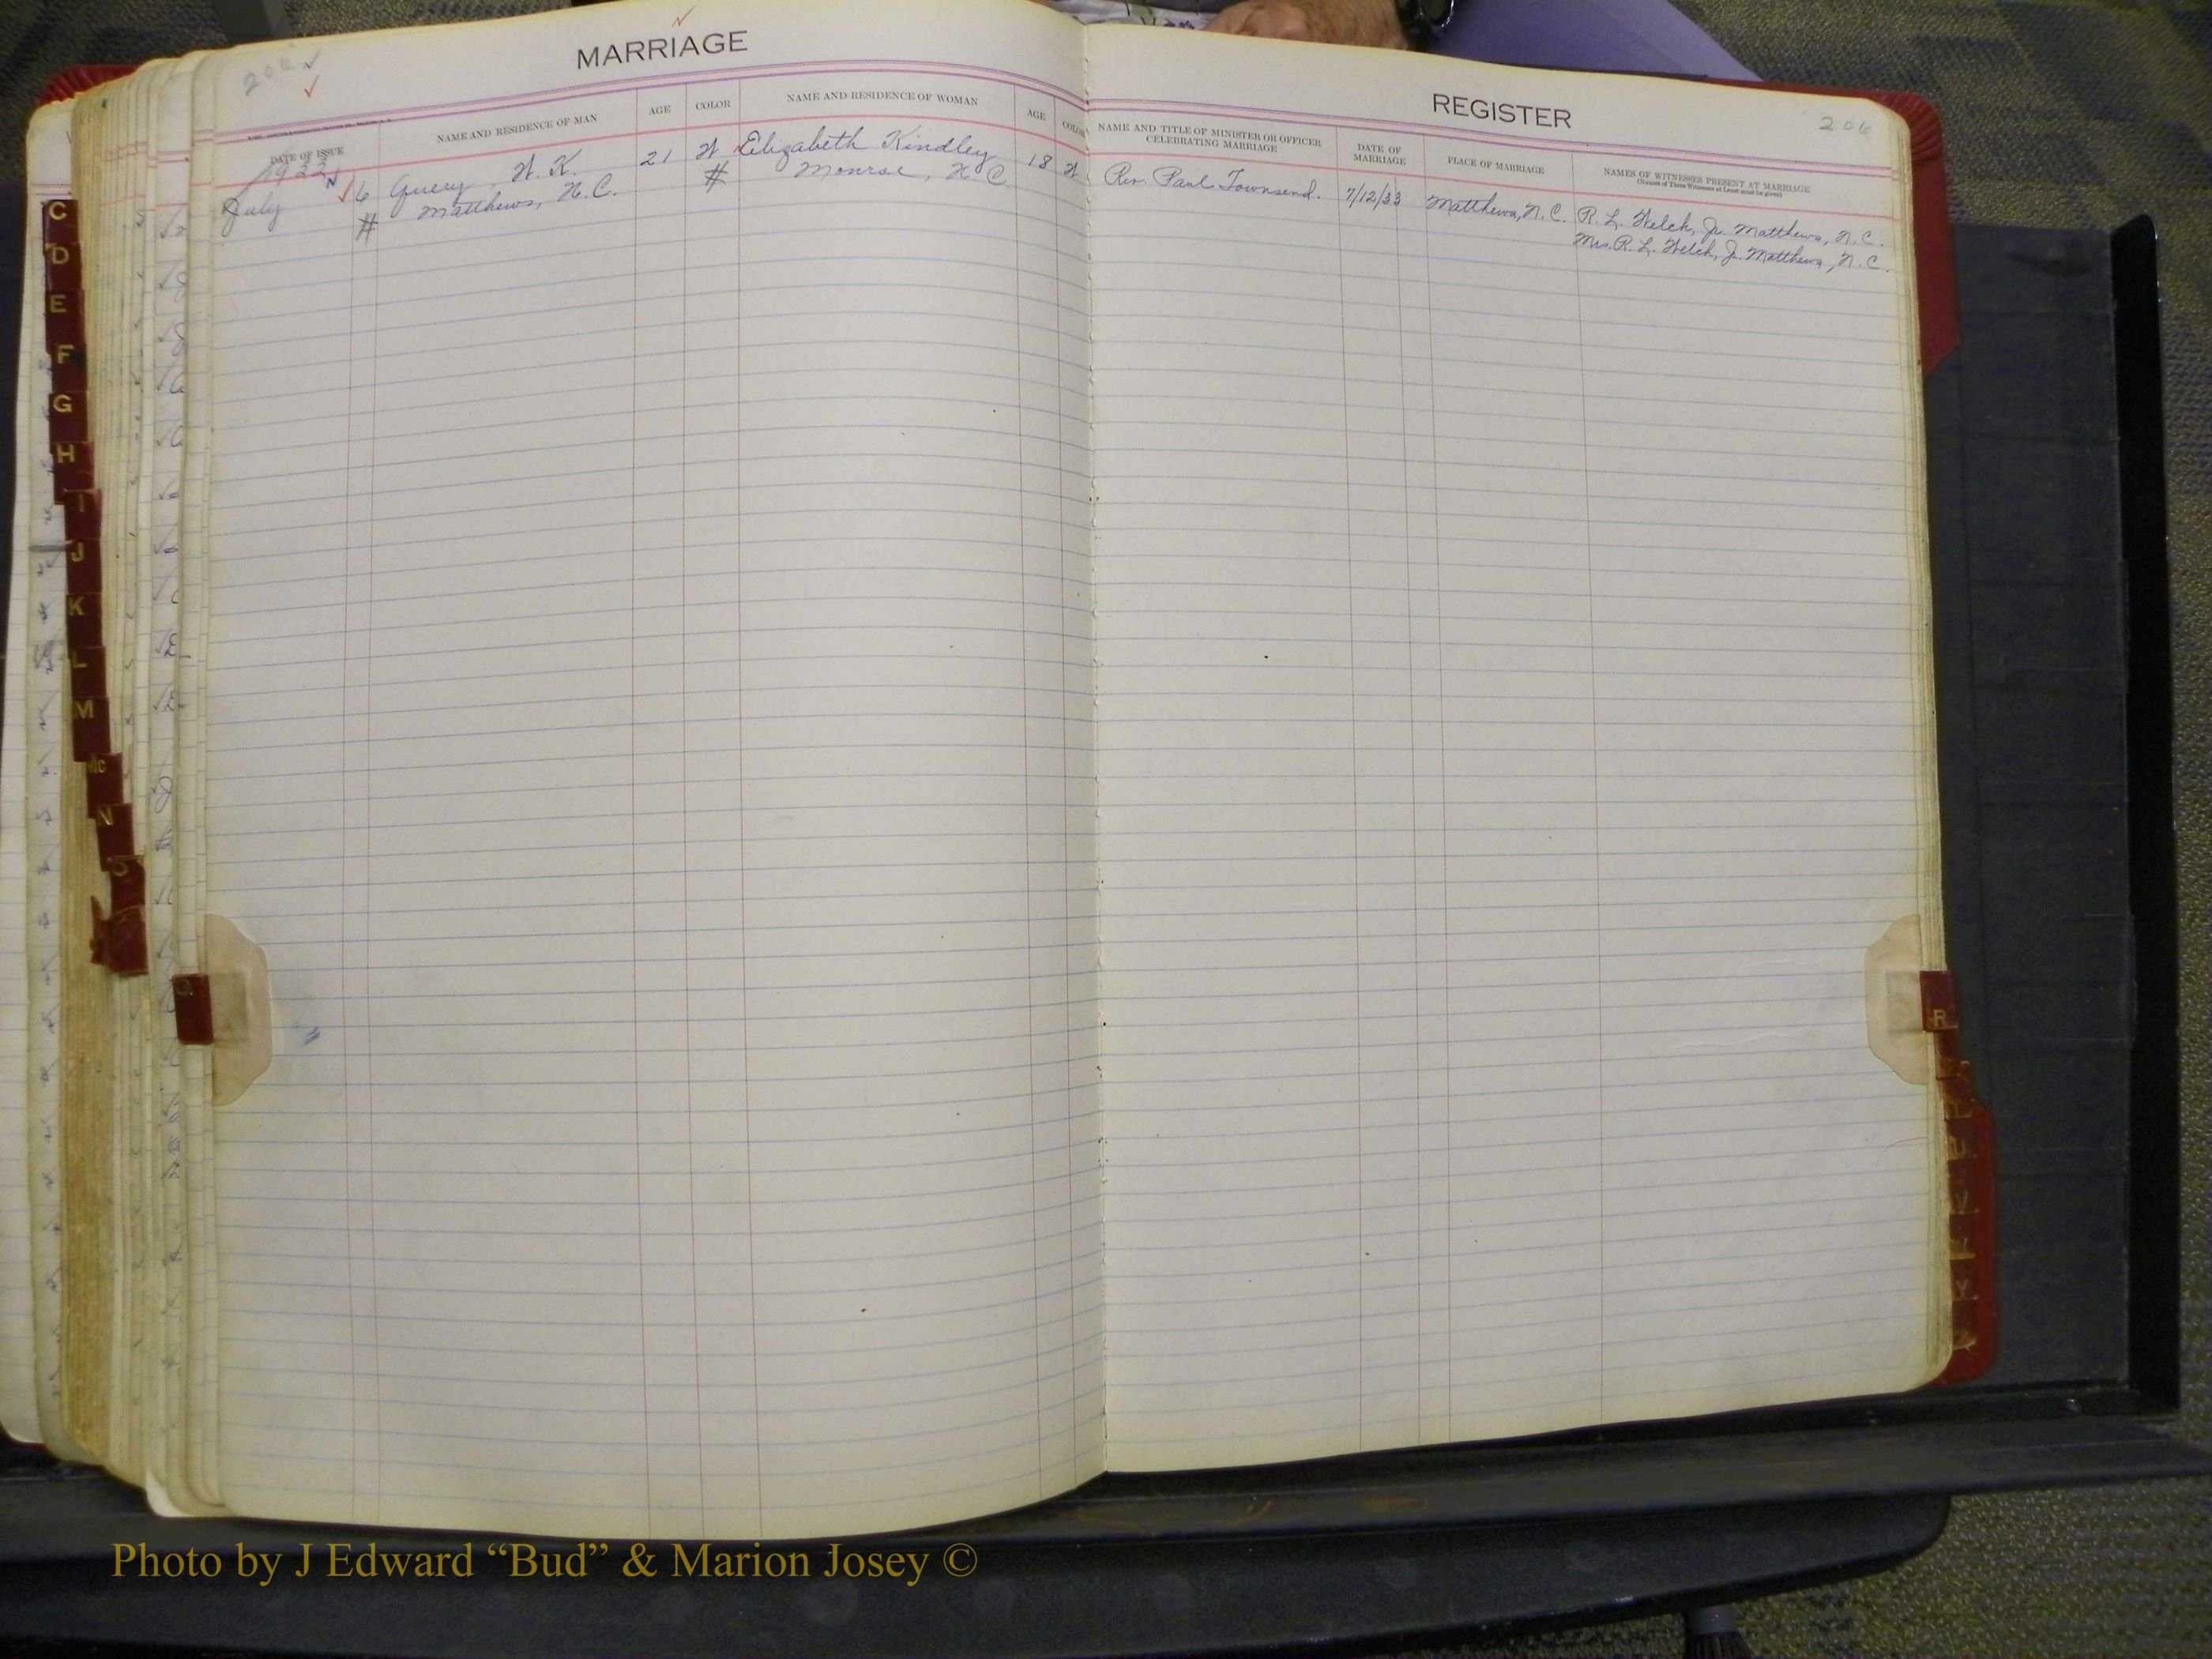 206
MARRIAGE
DATE OF ISSUE
NAME AND RESIDENCE OF MAN
AGE
COLOR
NAME AND RESIDENCE OF WOMAN
AGE
COLOR
1933
July 6 Query, W. K. 21 W Elizabeth Kindley 18 W
# Matthews, N.C. # Monroe, N.C.
REGISTER
206
NAME AND TITLE OF MINISTER OR OFFICER
CELEBRATING MARRIAGE
DATE OF
MARRIAGE
PLACE OF MARRIAGE
NAMES OF WITNESSES PRESENT AT MARRIAGE
(Names of Three Witnesses at Least must be given)
Rev. Paul Townsend. 7/12/33 Matthews, N.C. R. L. Welch, Jr. Matthews, N.C.
Mrs. R. L. Welch, Jr. Matthews, N.C.
C
D
E
F
G
H
I
J
K
L
M
Mc
N
O
Q
R
U
V
Y
Photo by J Edward “Bud” & Marion Josey ©